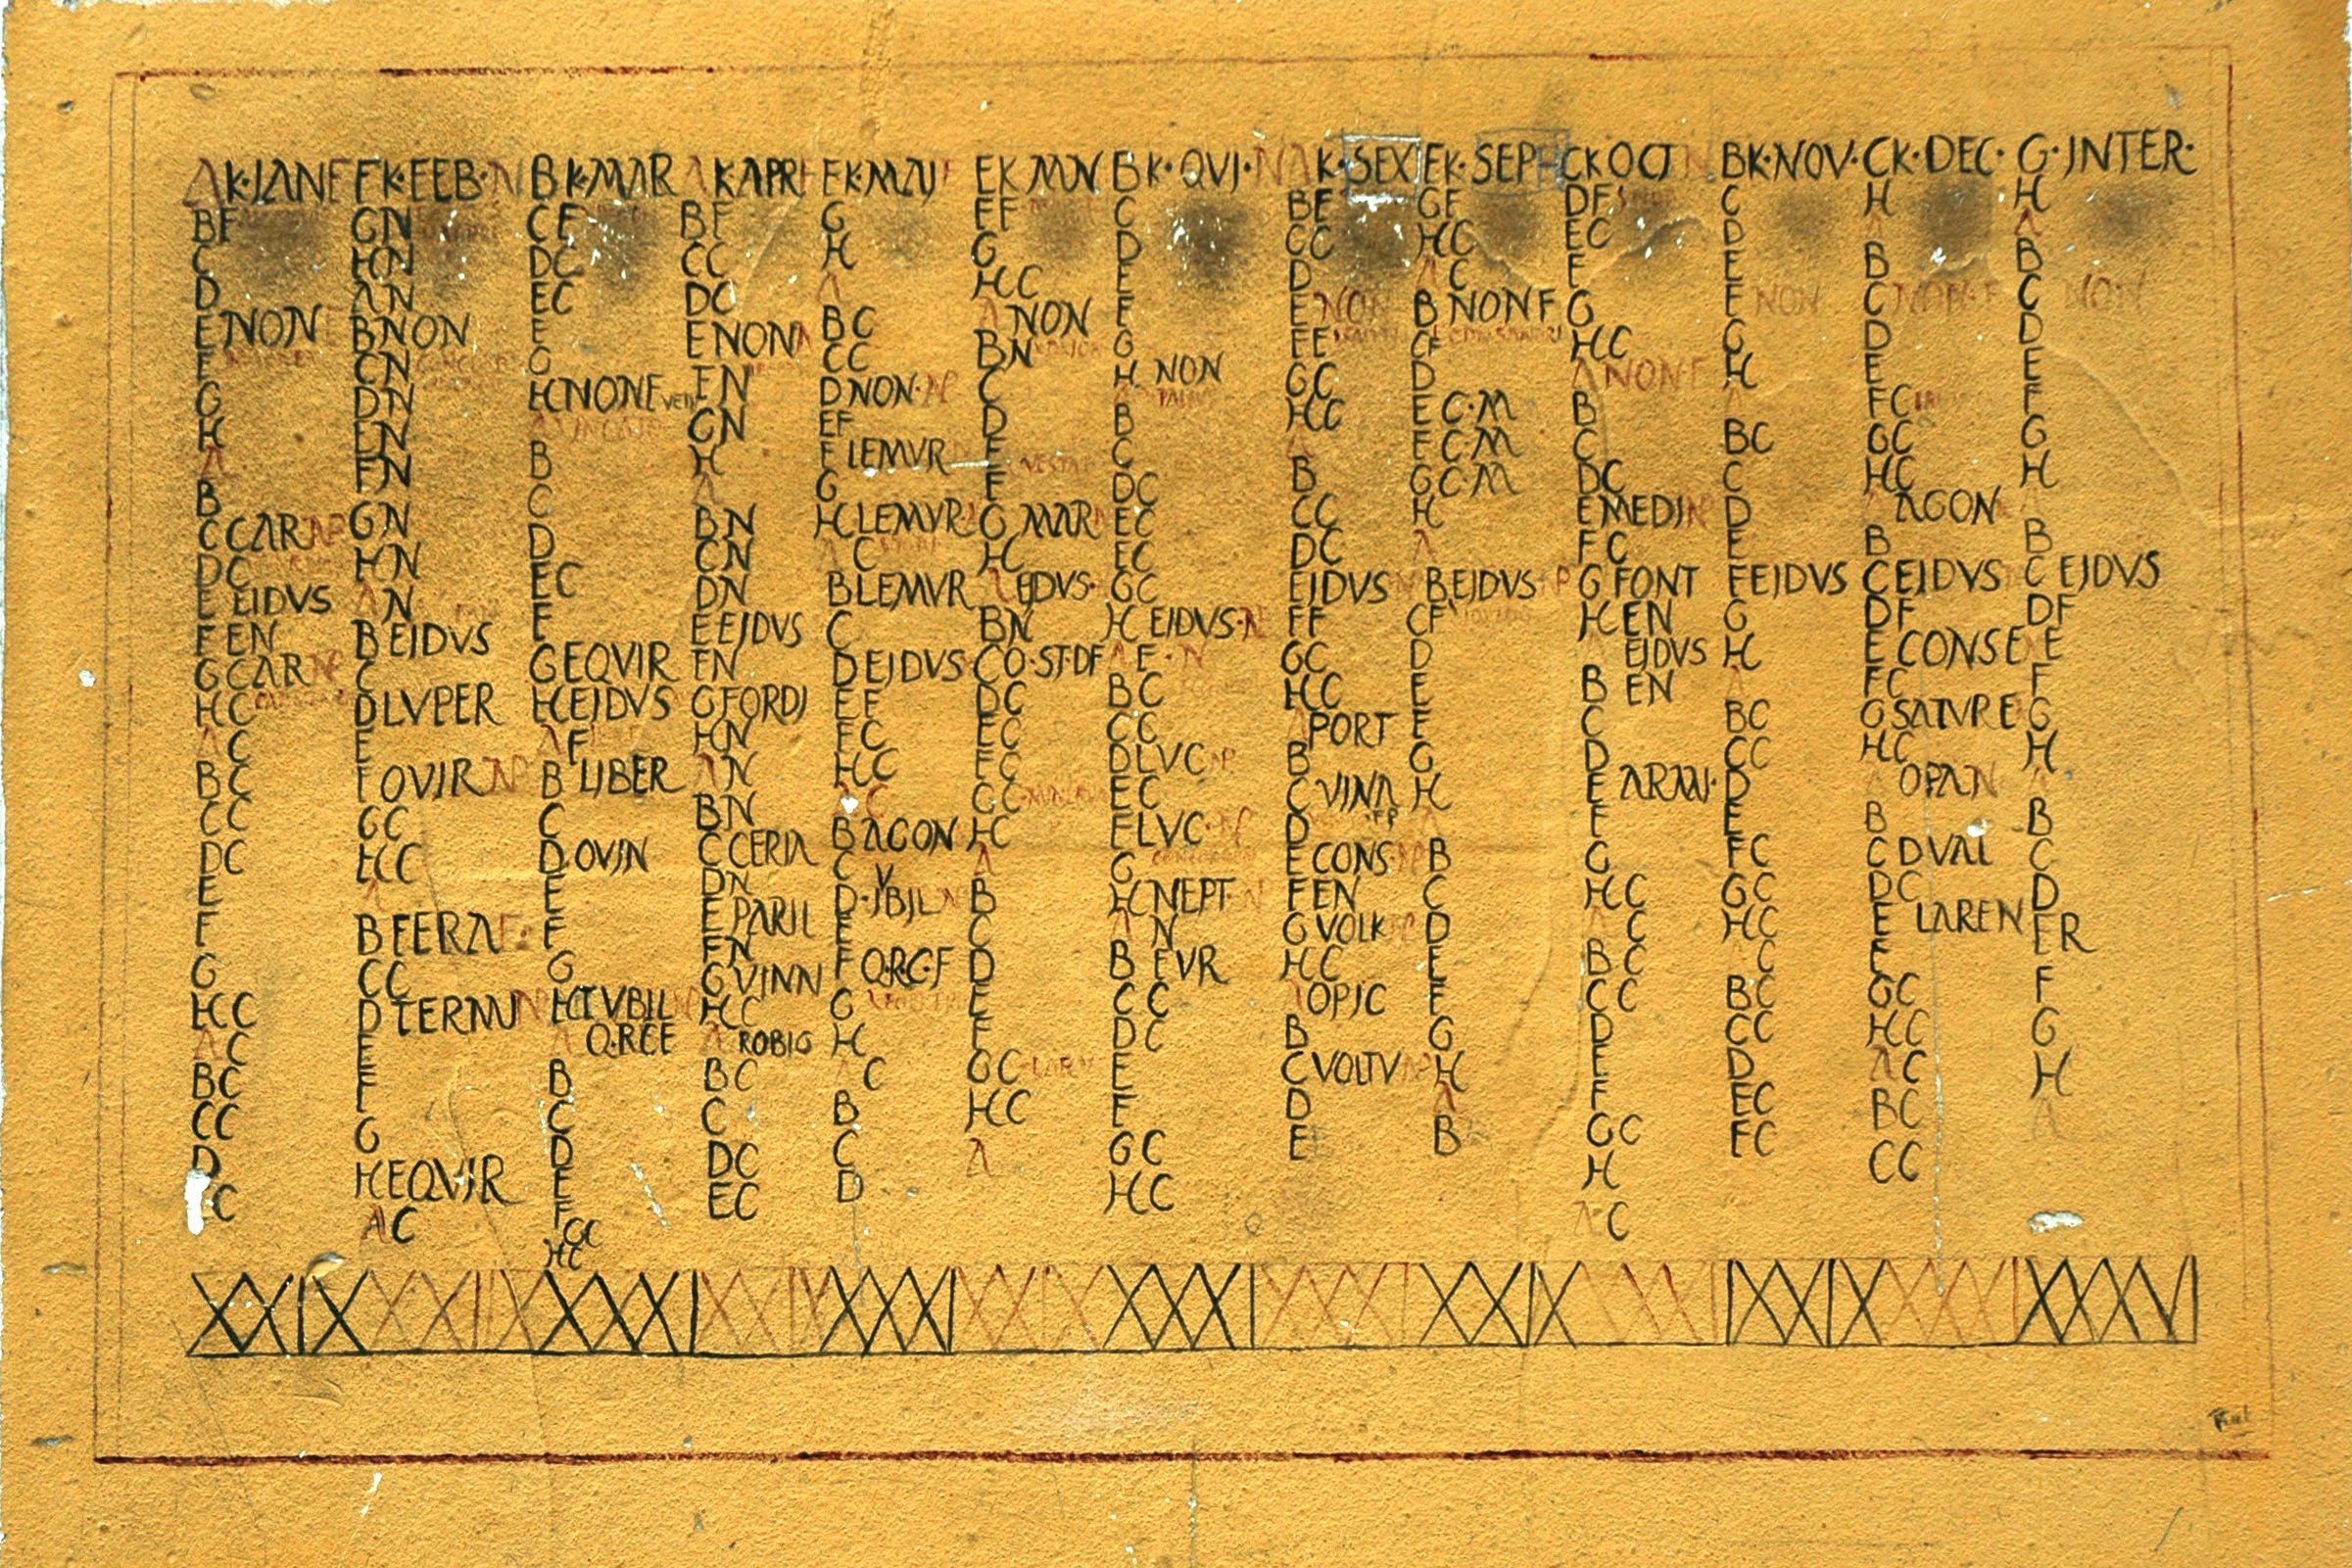 A K·IAN F
BF
C
D
E NON F
F
G
H
A
B
C CAR NP
DC
E EIDVS
F EN
G CAR NP
HC
AC
BC
CC
DC
E
F
G
HC
AC
BC
CC
D
C
F K·FEB·N
GN
HN
AN
B NON
CN
DN
EN
FN
GN
HN
AN
B EIDVS
C
D LVPER
E
F QVIR NP
GC
HC
A
B FERA F·
CC
D TERMI NP
E
F
G
H EQVIR
AC
B K·MAR
CF
DC
EC
F
G
H C NON F
A
B
C
D
EC
F
G EQVIR
H EIDVS
AF
B LIBER
C
D QVIN
E
F
G
H TVBIL N
A Q·RCF
B
C
D
E
F
GC
HC
A K APR F
BF
CC
DC
E NON N
FN
GN
H
A
BN
CN
DN
E EIDVS
FN
G FORDI
HN
AN
BN
C CERIA
DN
E PARIL
FN
G VINN
HC
A ROBIG
BC
C
DC
EC
F K·MAI F
G
H
A
BC
CC
D NON·NP
EF
F LEMVR
G
H LEMVR N
A C
B LEMVR
C
D EIDVS
EF
FC
HC
A C
B AGON
C
D·IBIL N
E
F Q·R·C·F
G
H
A C
B
C
D
E K IVN
FF
G
HC
A NON
BN
C
D
E VESTA
F
G MAR N
HC
A EIDVS·
BN
C Q·ST·DF
DC
EC
FC
GC
HC
A
B
C
D
E
F
GC
HC
A
B K·QVI·N
C
D
E
F
G
H NON
A
B
C
DC
EC
FC
GC
H EIDVS·N
A F·N
BC
CC
D LVC NP
EC
F LVC NP
G
H NEPT N
A N
B FVR
CC
DC
E
F
GC
HC
A K·SEX
BF
CC
D
E NON
FF
GC
HC
A
B
CC
DC
E IDVS N
FF
GC
HC
A PORT
B
C VINA
D FP
E CONS·NP
F EN
G VOLK NP
HC
A OPIC
B
C VOLTV NP
D
E
F K·SEP H
GF
HC
AC
B NON F
CF
D
E C·M
F C·M
G C·M
H
A
B EIDVS NP
CF
D
E
F
G
H
B
C
D
E
F
G
H
A
B
C K OCT N
DF
EC
F
G
HC
A NON F
B
C
DC
E MEDI N
FC
G FONT
H EN
EIDVS
B EN
C
D
E ARMI·
F
G
HC
A C
BC
CC
D
E
F
GC
H
A C
B K·NOV·
C
D
E
F NON
G
H
A
BC
C
D
E
F EIDVS
G
H
A
BC
CC
D
E
FC
GC
HC
C
BC
CC
DC
EC
FC
C K·DEC·
H
A
B
C NON·F
D
E
FC
GC
HC
A AGON
B
C EIDVS
DF
E CONSE
FC
G SATVR
HC
A OPA N
B
C DVAL
DC
E LAREN
F
GC
HC
AC
BC
CC
G·INTER·
H
A
B
C NON
D
E
F
G
H
B
C EIDVS
DF
E
F
G
H
A
B
C
D
ER
F
G
H
A
XXIX XXIIX XXXI XXIX XXXI XXIX XXXI XXIX XXIX XXXI XXIX XXIX XXXVI